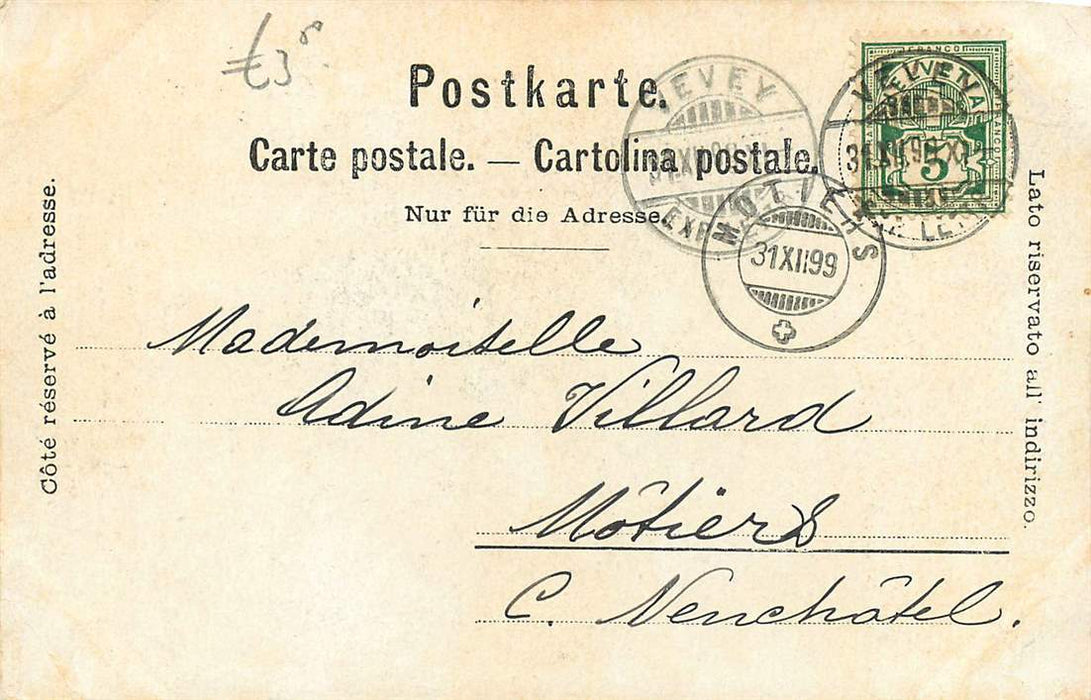 Postkarte.
Carte postale. — Cartolina postale.
Nur für die Adresse.
Côté réservé à l'adresse.
Lato riservato all' indirizzo.
FRANCO
HELVETIA
FRANCO
5
VEVEY
31.XII.99
LET
VEVEY
XII
EXP
MOTIERS
31XII99
Mademoiselle
Adine Villard
Môtiers
C. Neuchâtel.